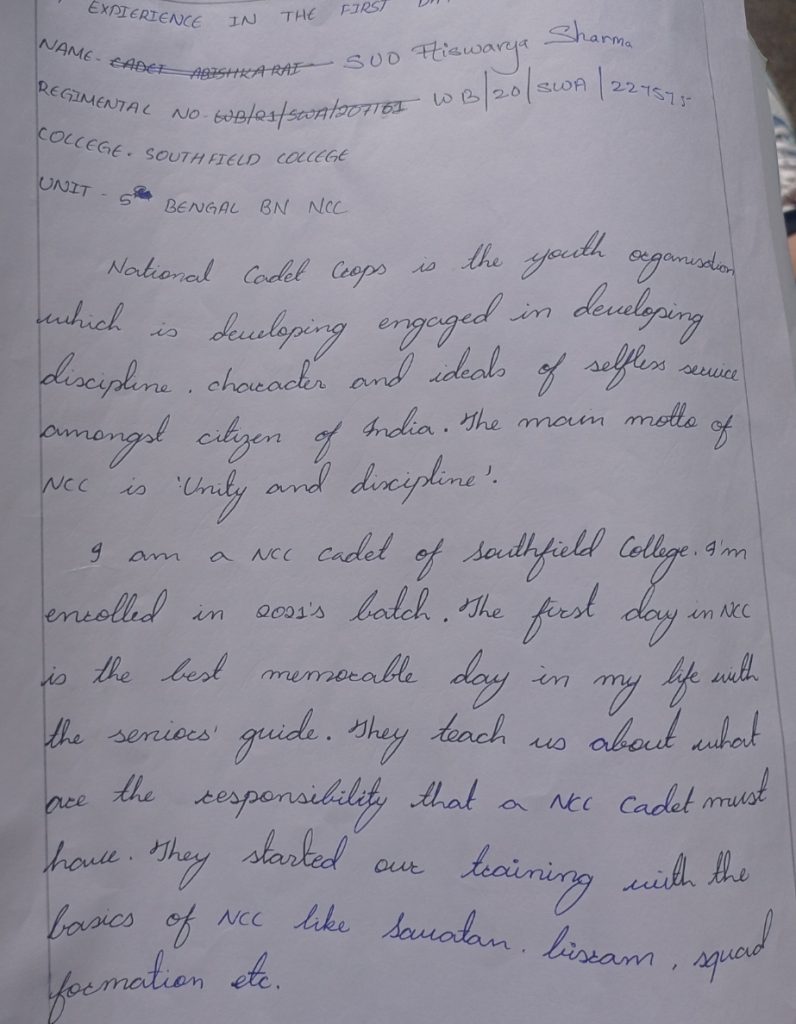 EXPIERIENCE IN THE FIRST
NAME - CADET ABISHKA RAI SUO Aiswarya Sharma
REGIMENTAL NO - WB/21/SWA/207161 WB/20/SWA/227575
COLLEGE - SOUTHFIELD COLLEGE
UNIT - 5 BENGAL BN NCC
National Cadet Crops is the youth organisation
which is developing engaged in developing
discipline, character and ideals of selfless service
amongst citizen of India. The main motto of
NCC is 'Unity and discipline'.
I am a NCC cadet of Southfield College. I'm
enrolled in 2021's batch. The first day in NCC
is the best memorable day in my life with
the seniors' guide. They teach us about what
are the responsibility that a NCC Cadet must
have. They started our training with the
basics of NCC like Savatan, bisram, squad
formation etc.